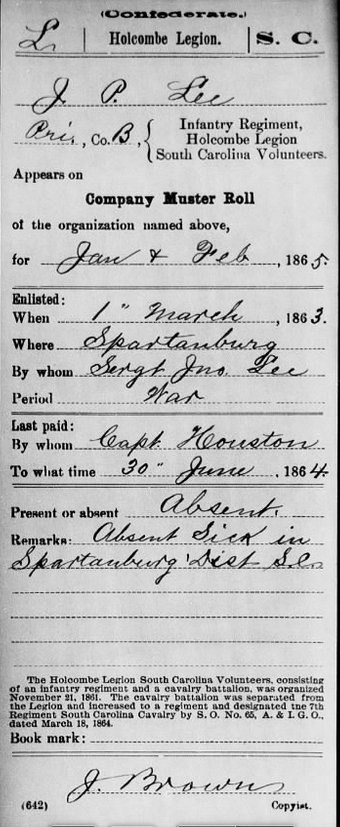 (Confederate.)
L. Holcombe Legion. S. C.
J. P. Lee
Pri., Co. B, Infantry Regiment,
Holcombe Legion
South Carolina Volunteers.
Appears on
Company Muster Roll
of the organization named above,
for Jan & Feb, 1865.
Enlisted:
When 1" March, 1863.
Where Spartanburg
By whom Sergt Jno. Lee
Period War
Last paid:
By whom Capt. Houston
To what time 30" June, 1864.
Present or absent Absent.
Remarks: Absent Sick in
Spartanburg Dist S.C.
The Holcombe Legion South Carolina Volunteers, consisting
of an infantry regiment and a cavalry battalion, was organized
November 21, 1861. The cavalry battalion was separated from
the Legion and increased to a regiment and designated the 7th
Regiment South Carolina Cavalry by S. O. No. 65, A. & I. G. O.,
dated March 18, 1864.
Book mark:
J. Brown
(642) Copyist.